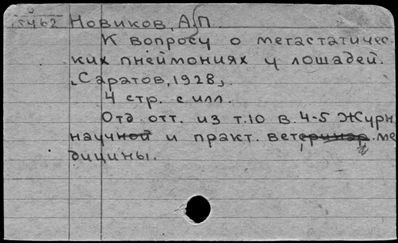 5462 Новиков, А.П.
К вопросу о метастатичес-
ких пнеймониях у лошадей.
[Саратов, 1928].
4 стр. с илл.
Отд. отт. из т.10 в. 4-5 Журн
научной и практ. ветеринар. ме
дицины.